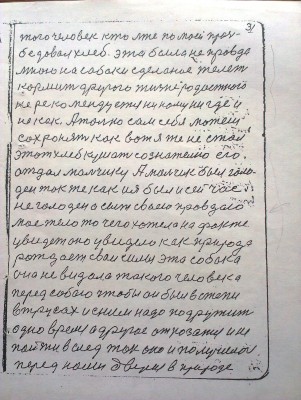 3
того человек кто лже по мой треб
бедовал хлеб. это была не правда
мною на собаки сделаное телет
кормит другого тизнерадостного
не рекомендуется никому нигде и
не как. А толко сам себя можеш
сохронят как вот я те не стал
этот хлеб кушат сознателно его
отдал малчику А малчик был голо
ден так же как и я был и сей час
не голоден а сыт своею правдаю
мое тело то чего хотела на факте
увидет оно увидело как природа
рождает сваи силы эта собака
она не видала такого человека
перед собаю чтобы он был в степи
в трусах и с ним надо подружит
одно время а другое отказат и не
пойти в след так оно и получилос
перед нашы дверы в природе